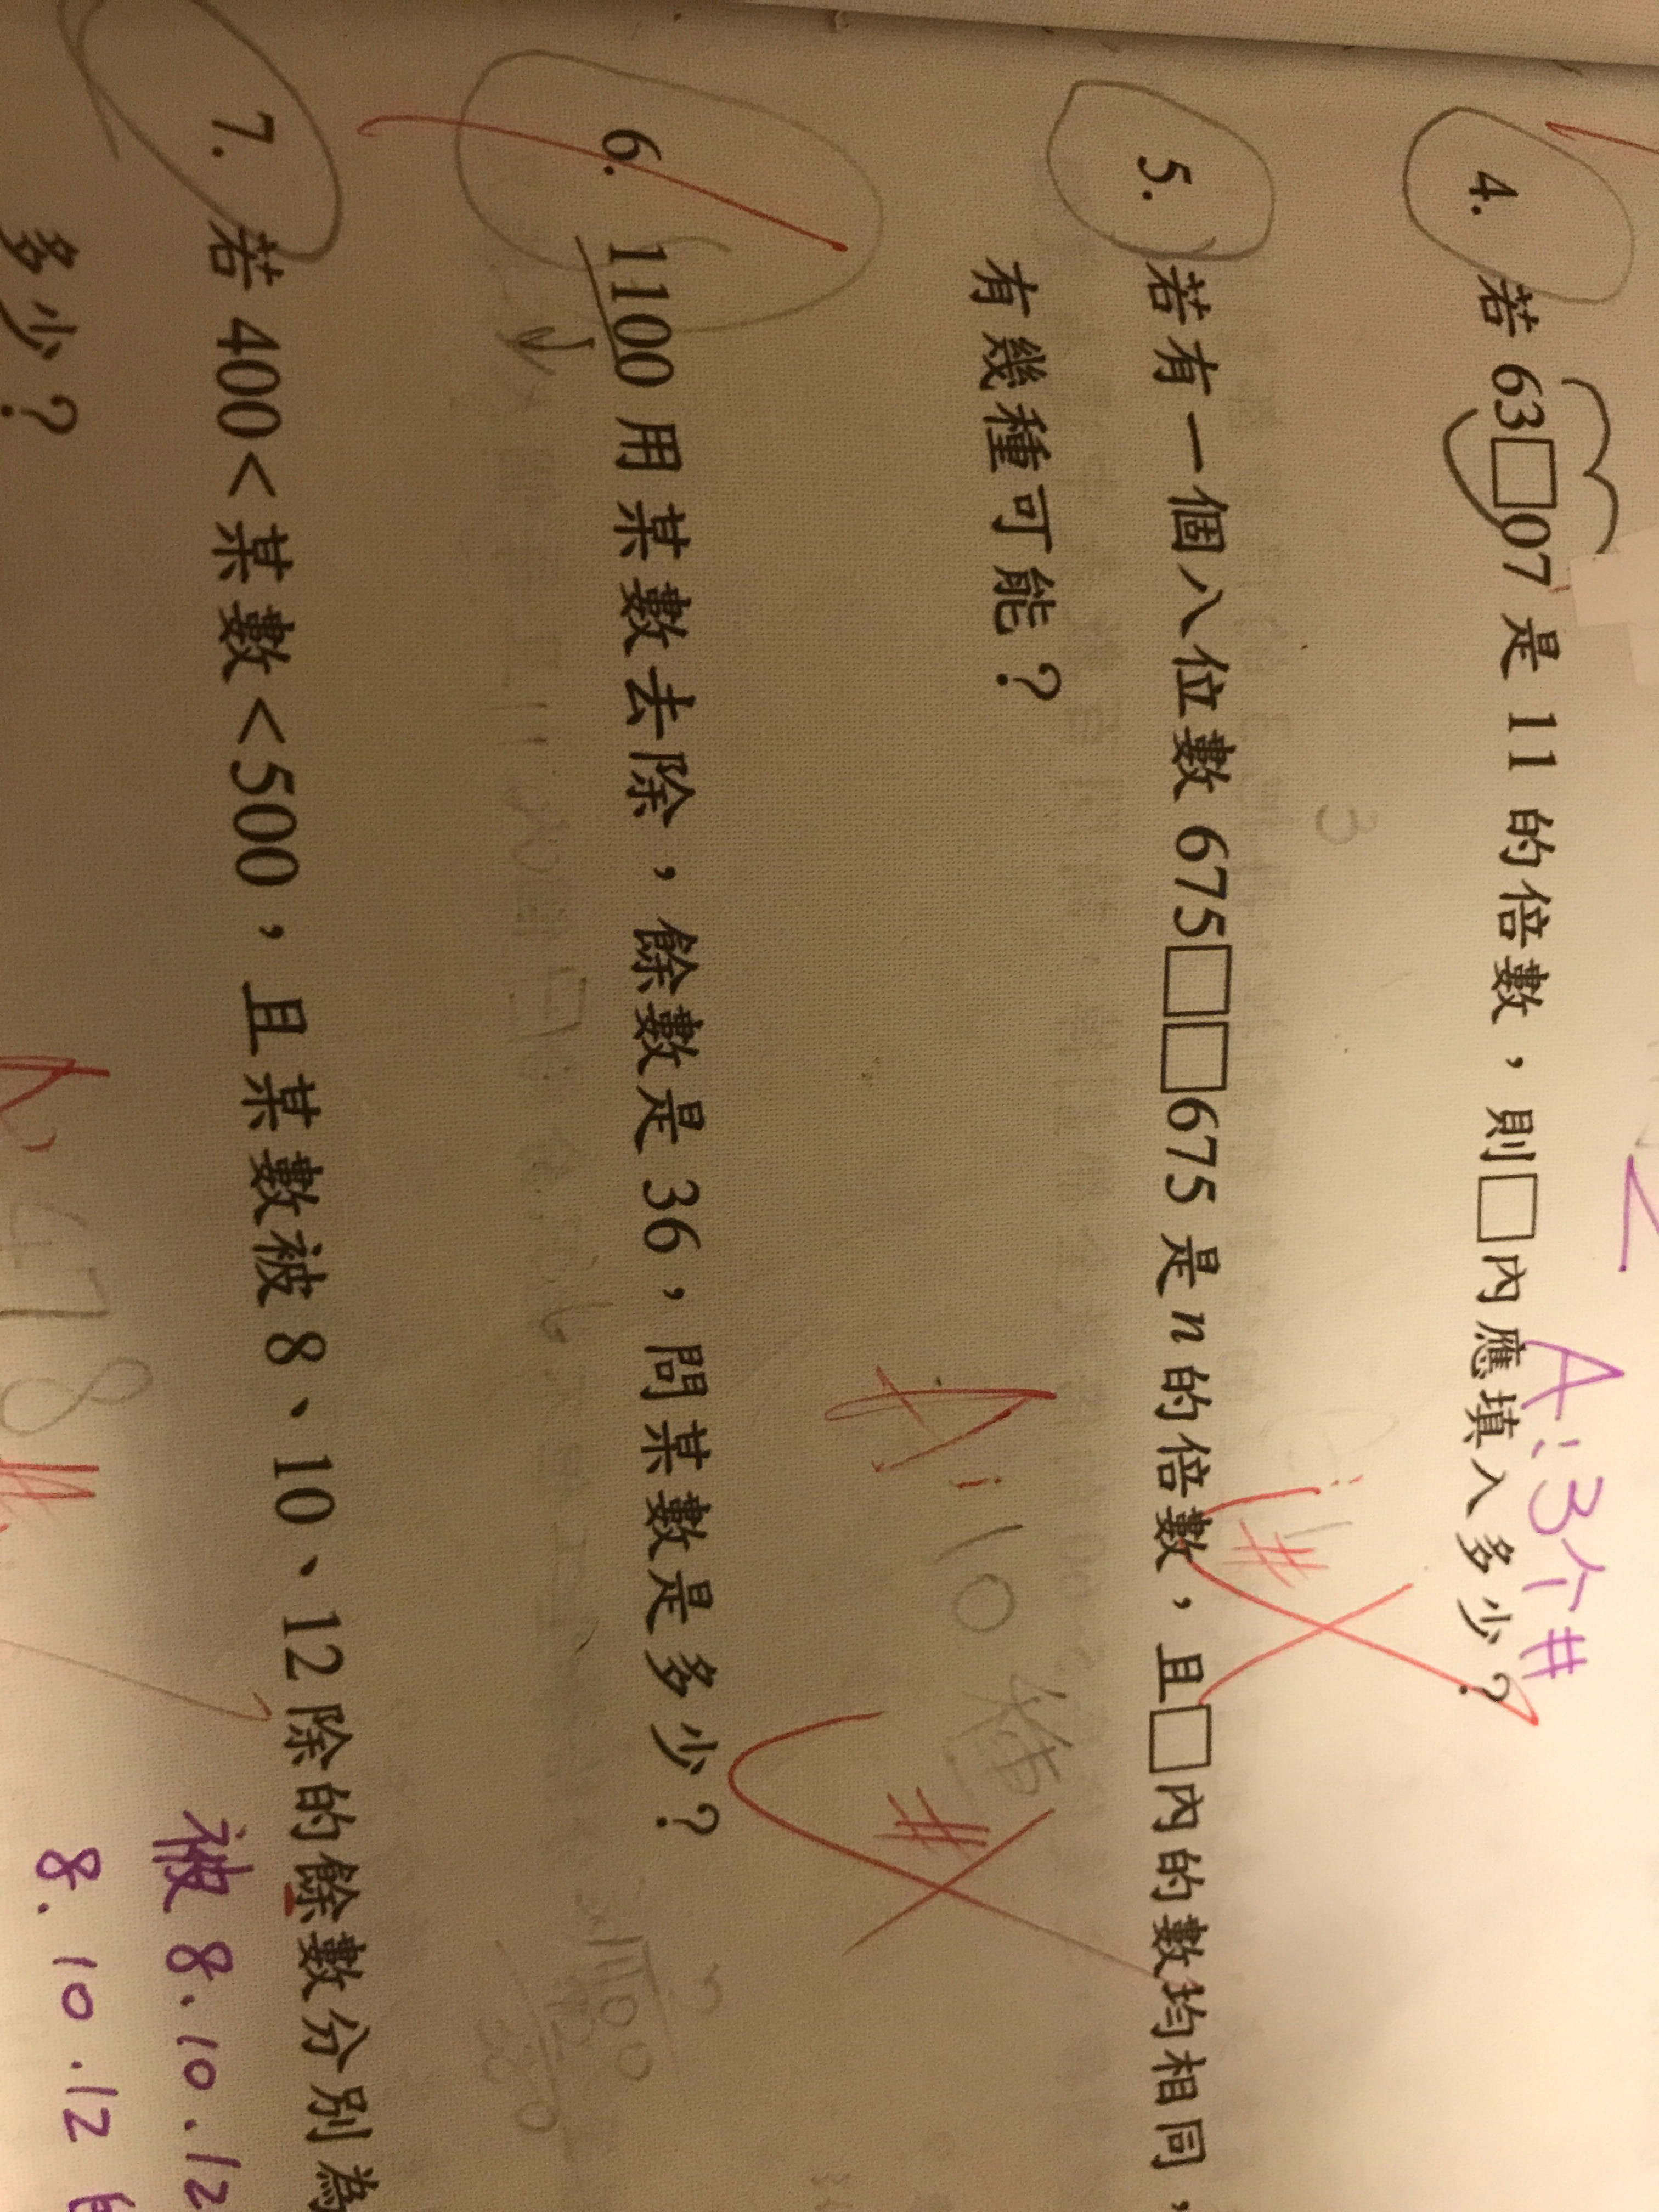 A:3个#
4. 若63□07是11的倍數，則□內應填入多少？
3
#
5. 若有一個八位數675□□675是n的倍數，且□內的數均相同，
有幾種可能？
A:10 #
6. 1100用某數去除，餘數是36，問某數是多少？
7. 若400<某數<500，且某數被8、10、12除的餘數分別為
多少？
被8.10.12
8.10.12
A: 478 #